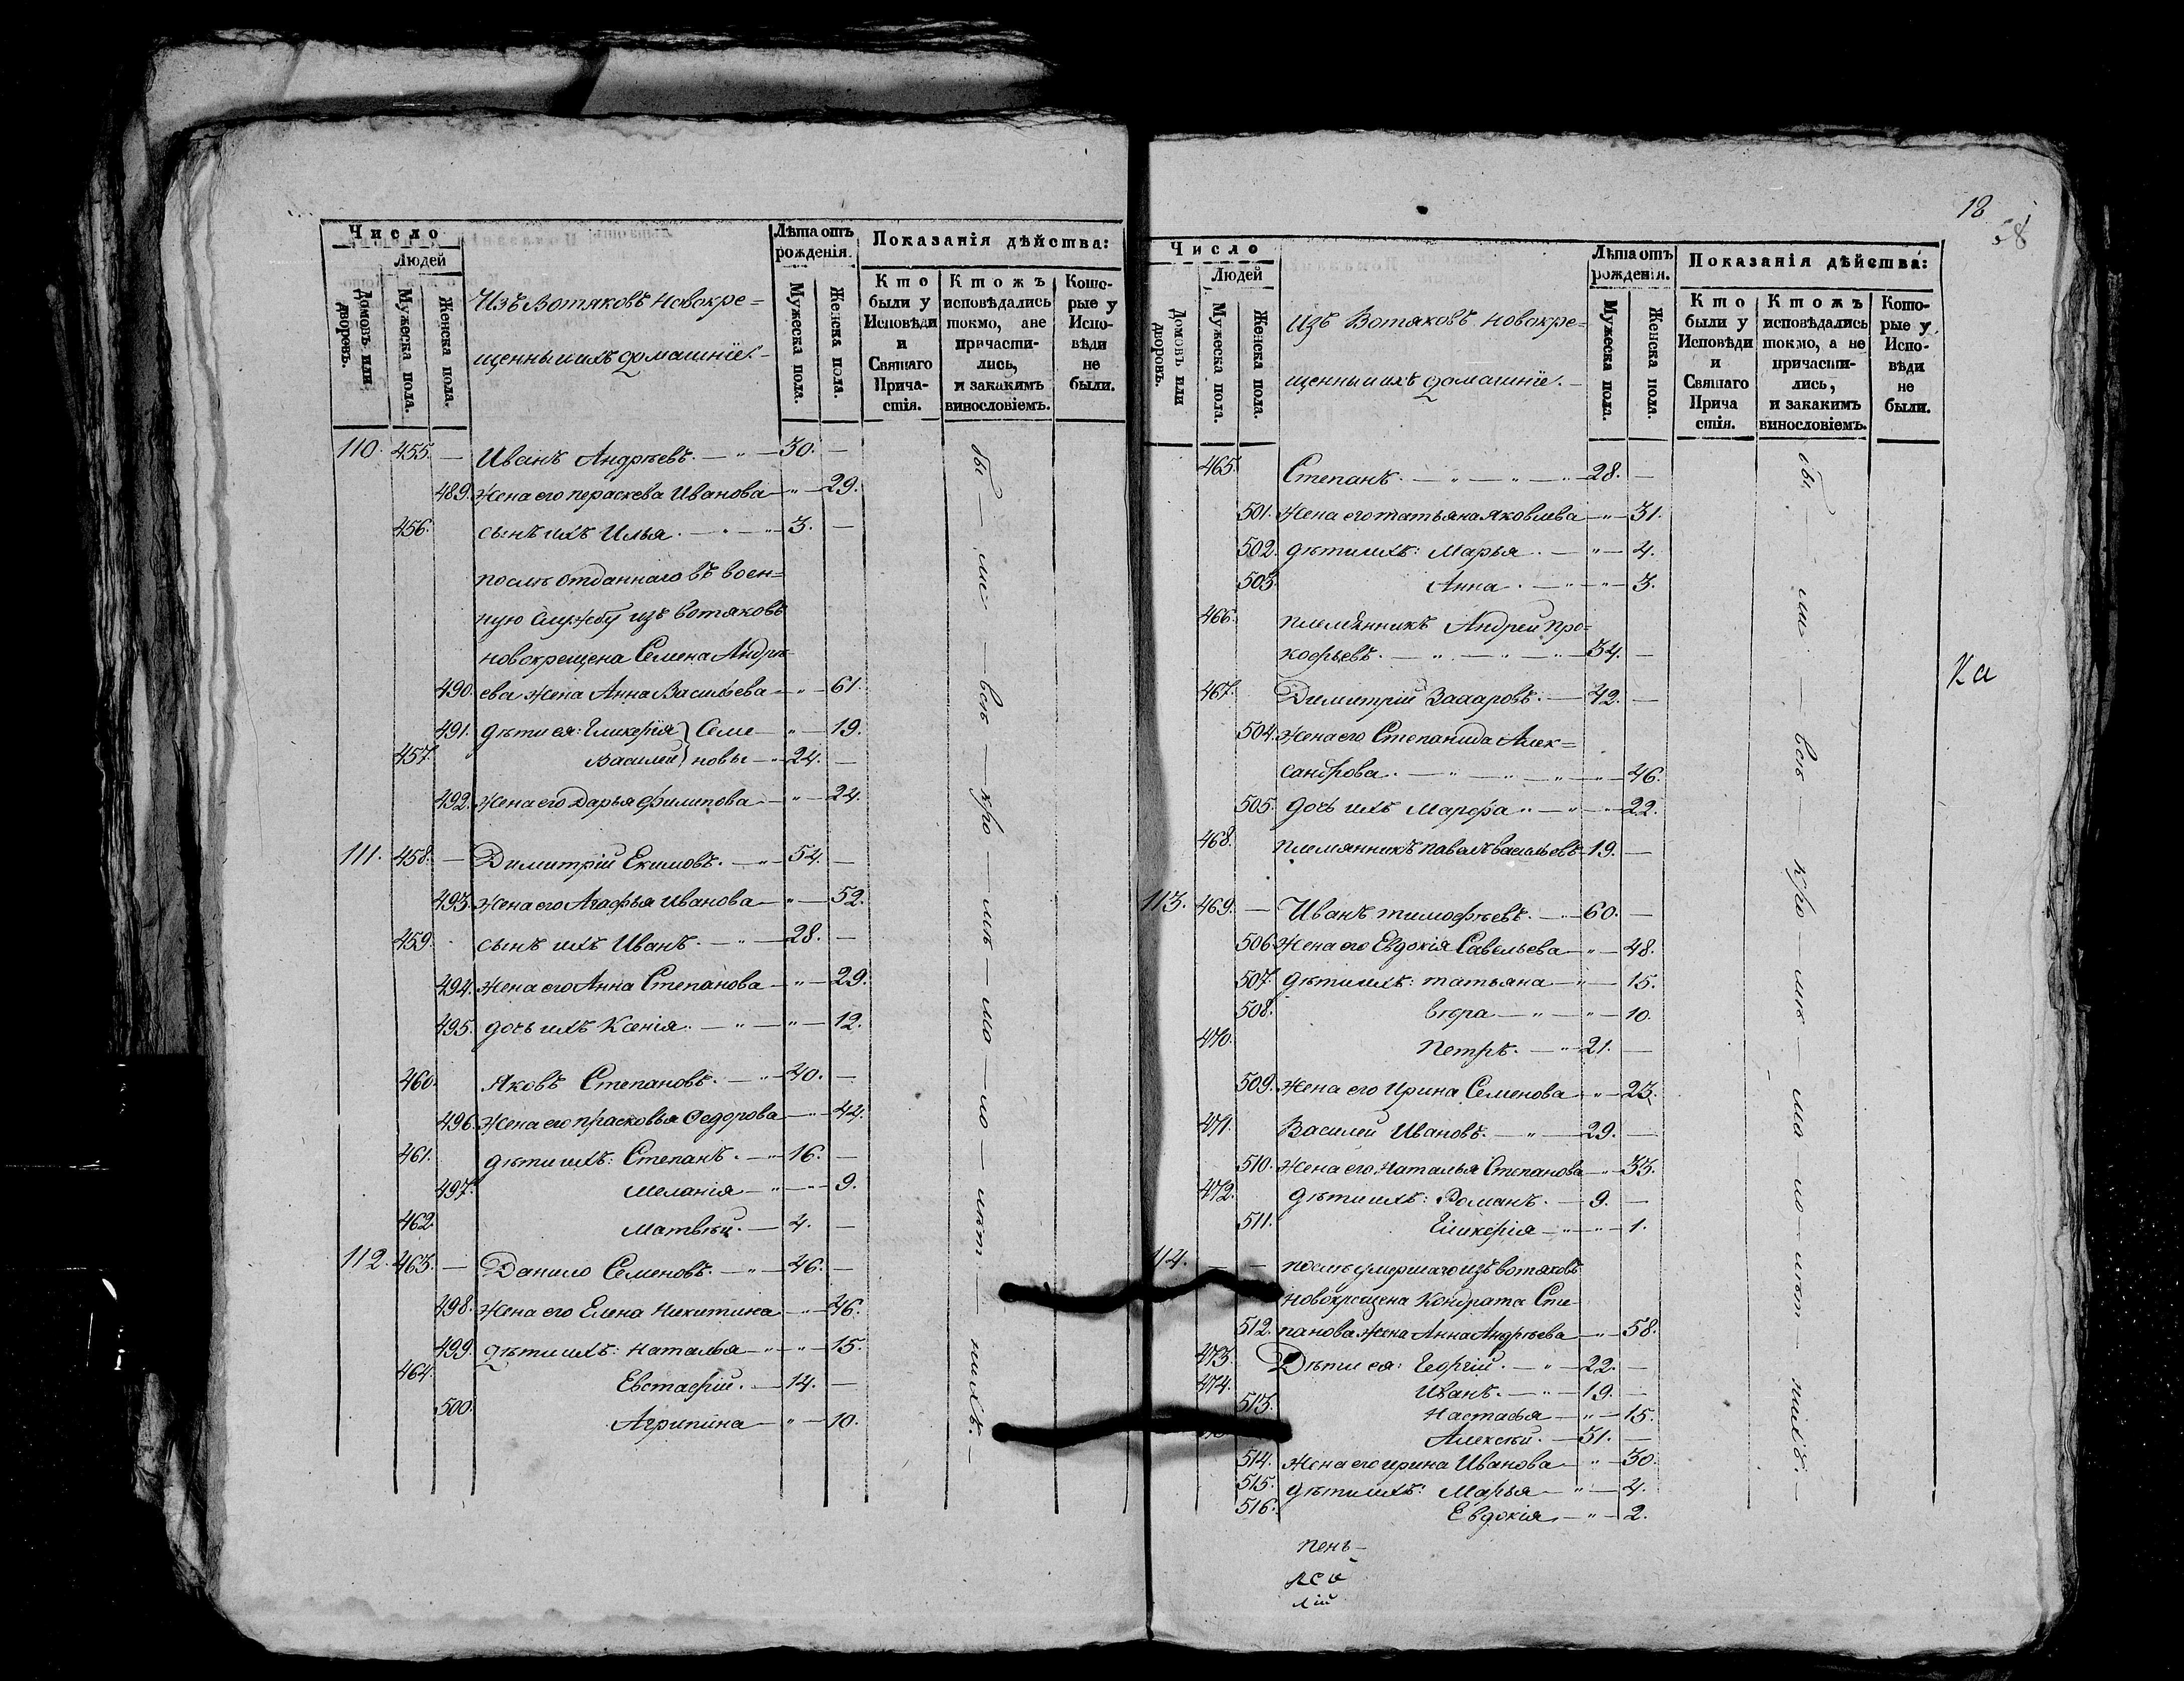 Число
Людей
Домовъ или дворовъ.
Мужеска пола.
Женска пола.
Изъ Вотяковъ новокре=
щенныи ихъ домашніе.
Лѣта отъ рожденія.
Мужеска пола.
Женска пола.
Показанія дѣйства:
Кто были у Исповѣди и Святаго Причастія.
Ктожъ исповѣдались токмо, ане причастились, и закакимъ винословіемъ.
Которые у Исповѣди не были.
110. 455. — Иванъ Андреевъ. — 30. —
489. жена его пераскева Иванова — 29.
456. сынъ ихъ Илья. — 3. —
послѣ отданнаго въ воен=
ную службу изъ вотяковъ
новокрещена Семена Андре
490. ева жена Анна Васильева — 61.
491. дѣти ея: Гликерія } Семе — 19.
457. Василей } новы — 24. —
492. жена его Дарья филипова — 24.
111. 458. — Димитрій Екимовъ. — 54. —
493. жена его Агафья Иванова — 52.
459. сынъ ихъ Иванъ. — 28. —
494. жена его Анна Степанова — 29.
495. дочь ихъ Ксенія. — 12.
460. Яковъ Степановъ. — 40. —
496. жена его прасковья Федорова — 44.
461. дѣти ихъ: Степанъ. — 16. —
497. Меланія — 9.
462. Матвѣй. — 4. —
112. 463. — Данило Семеновъ. — 46. —
498. жена его Елена Никитина — 46.
499. дѣти ихъ: Наталья — 15.
464. Евстафій. — 14. —
500. Агрипина — 10.
бы — ли — всѣ — кро — мѣ — ма — ло — лѣт — нихъ. —
18
58
Число
Людей
Домовъ или дворовъ.
Мужеска пола.
Женска пола.
Изъ Вотяковъ новокре=
щенныи ихъ домашніе. —
Лѣта отъ рожденія.
Мужеска пола.
Женска пола.
Показанія дѣйства:
Кто были у Исповѣди и Святаго Причастія.
Ктожъ исповѣдались токмо, а не причастились, и закакимъ винословіемъ.
Которые у Исповѣди не были.
465. Степанъ. — 28. —
501. жена его татьяна яковлева — 31.
502. дѣти ихъ: Марья. — 4.
503. Анна. — 3.
466. племянникъ Андрей про=
кофьевъ. — 34. —
467. Димитрій Захаровъ. — 42. —
504. жена его Степанида Алек=
сандрова. — 46.
505. дочь ихъ Марфа — 22.
468. племянникъ павелъ васильевъ 19. —
113. 469. — Иванъ тимофѣевъ. — 60. —
506. жена его Евдокія Савельева — 48.
507. дѣти ихъ: татьяна — 15.
508. вѣра — 10.
470. Петръ. — 21. —
509. жена его Ирина Семенова — 23.
471. Василей Ивановъ. — 29. —
510. жена его наталья Степанова — 33.
472. дѣти ихъ: Романъ. — 9. —
511. Гликерія — 1.
114. — — послѣ умершаго изъ вотяковъ
новокрещена Кондрата Сте
512. панова жена Анна Андреева — 58.
473. Дѣти ея: Георгій. — 22. —
474. Иванъ. — 19. —
513. Настасья — 15.
Алексѣй. — 31. —
514. жена его ирина Иванова — 30.
515. дѣти ихъ: Марья — 4.
516. Евдокія — 2.
бы — ли — всѣ — кро — мѣ — ма — ло — лѣт — нихъ. —
Ка
лій